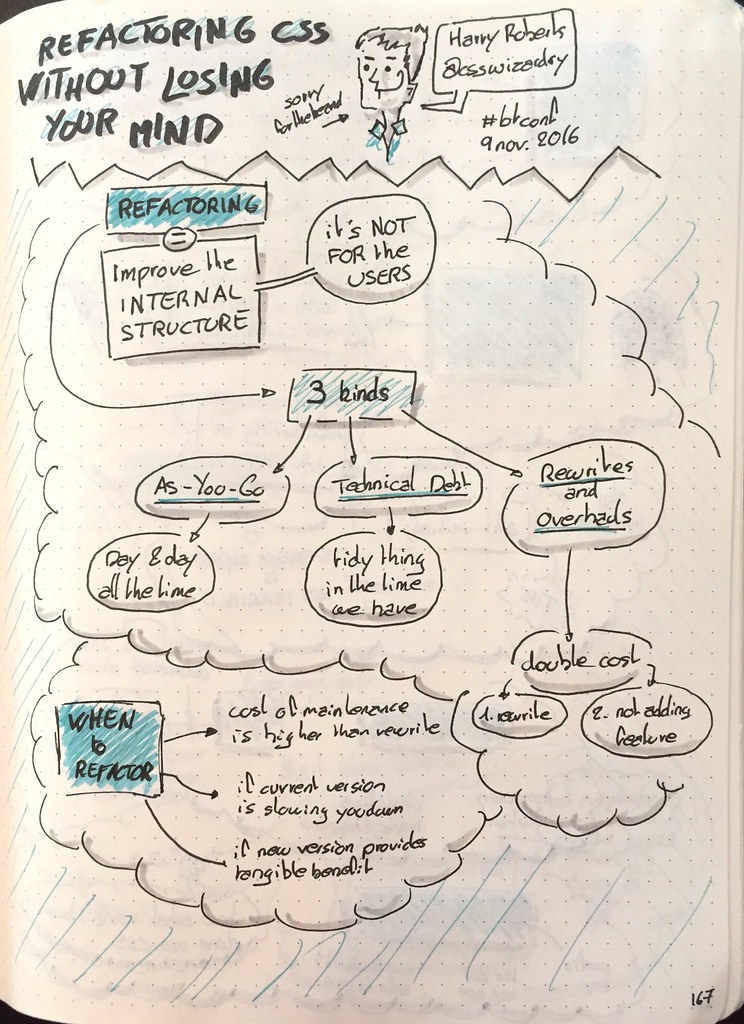 REFACTORING CSS
WITHOUT LOSING
YOUR MIND
Harry Roberts
@csswizardry
sorry
for the beard
#btconf
9 nov. 2016
REFACTORING
=
Improve the
INTERNAL
STRUCTURE
it's NOT
FOR the
USERS
3 kinds
As-You-Go
Technical Debt
Rewrites
and
Overhauls
Day & day
all the time
tidy thing
in the time
we have
double cost
1. rewrite
2. not adding
feature
WHEN
to
REFACTOR
cost of maintenance
is higher than rewrite
if current version
is slowing you down
if new version provides
tangible benefit
167